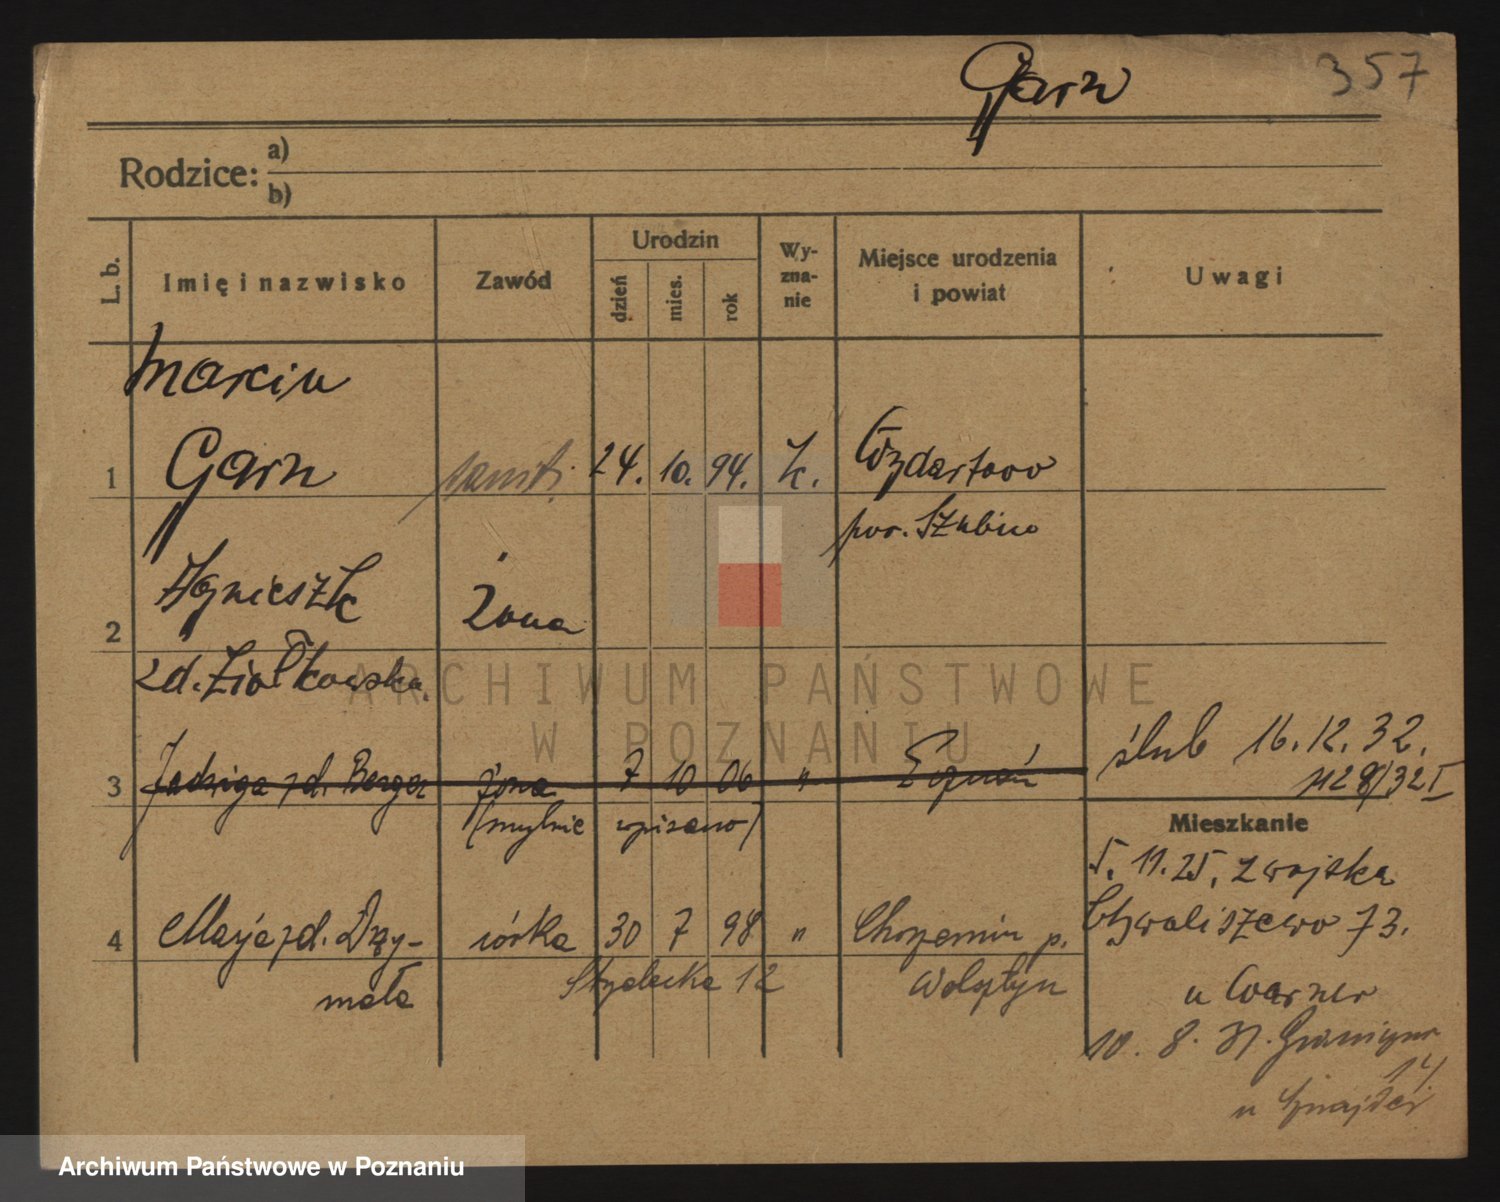 Garn 357
Rodzice: a)
b)
L. b. Imię i nazwisko Zawód Urodzin dzień mies. rok Wy-zna-nie Miejsce urodzenia i powiat Uwagi
Marcin
1 Garn 24. 10. 94. k. Wzdartowo
pow. Szubin
Agnieszk
2 żona
zd. Ziołkowska
ślub 16.12.32.
3 Jadwiga zd. Berger żona 7 10 06 " Poznań
(mylnie wpisano)
Mieszkanie
5. 11. 25. z wojska
4 Marja zd. Drzy- córka 30 7 98 " p. Chwaliszewo 73.
mała 12 Wolsztyn
u Warner
10. 8.
14
u
ARCHIWUM PAŃSTWOWE
W POZNANIU
Archiwum Państwowe w Poznaniu